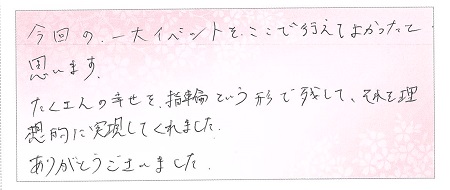 今回の、一大イベントを、ここで行えてよかったと
思います。
たくさんの幸せを、指輪という形で残して、それを理
想的に実現してくれました。
ありがとうございました。